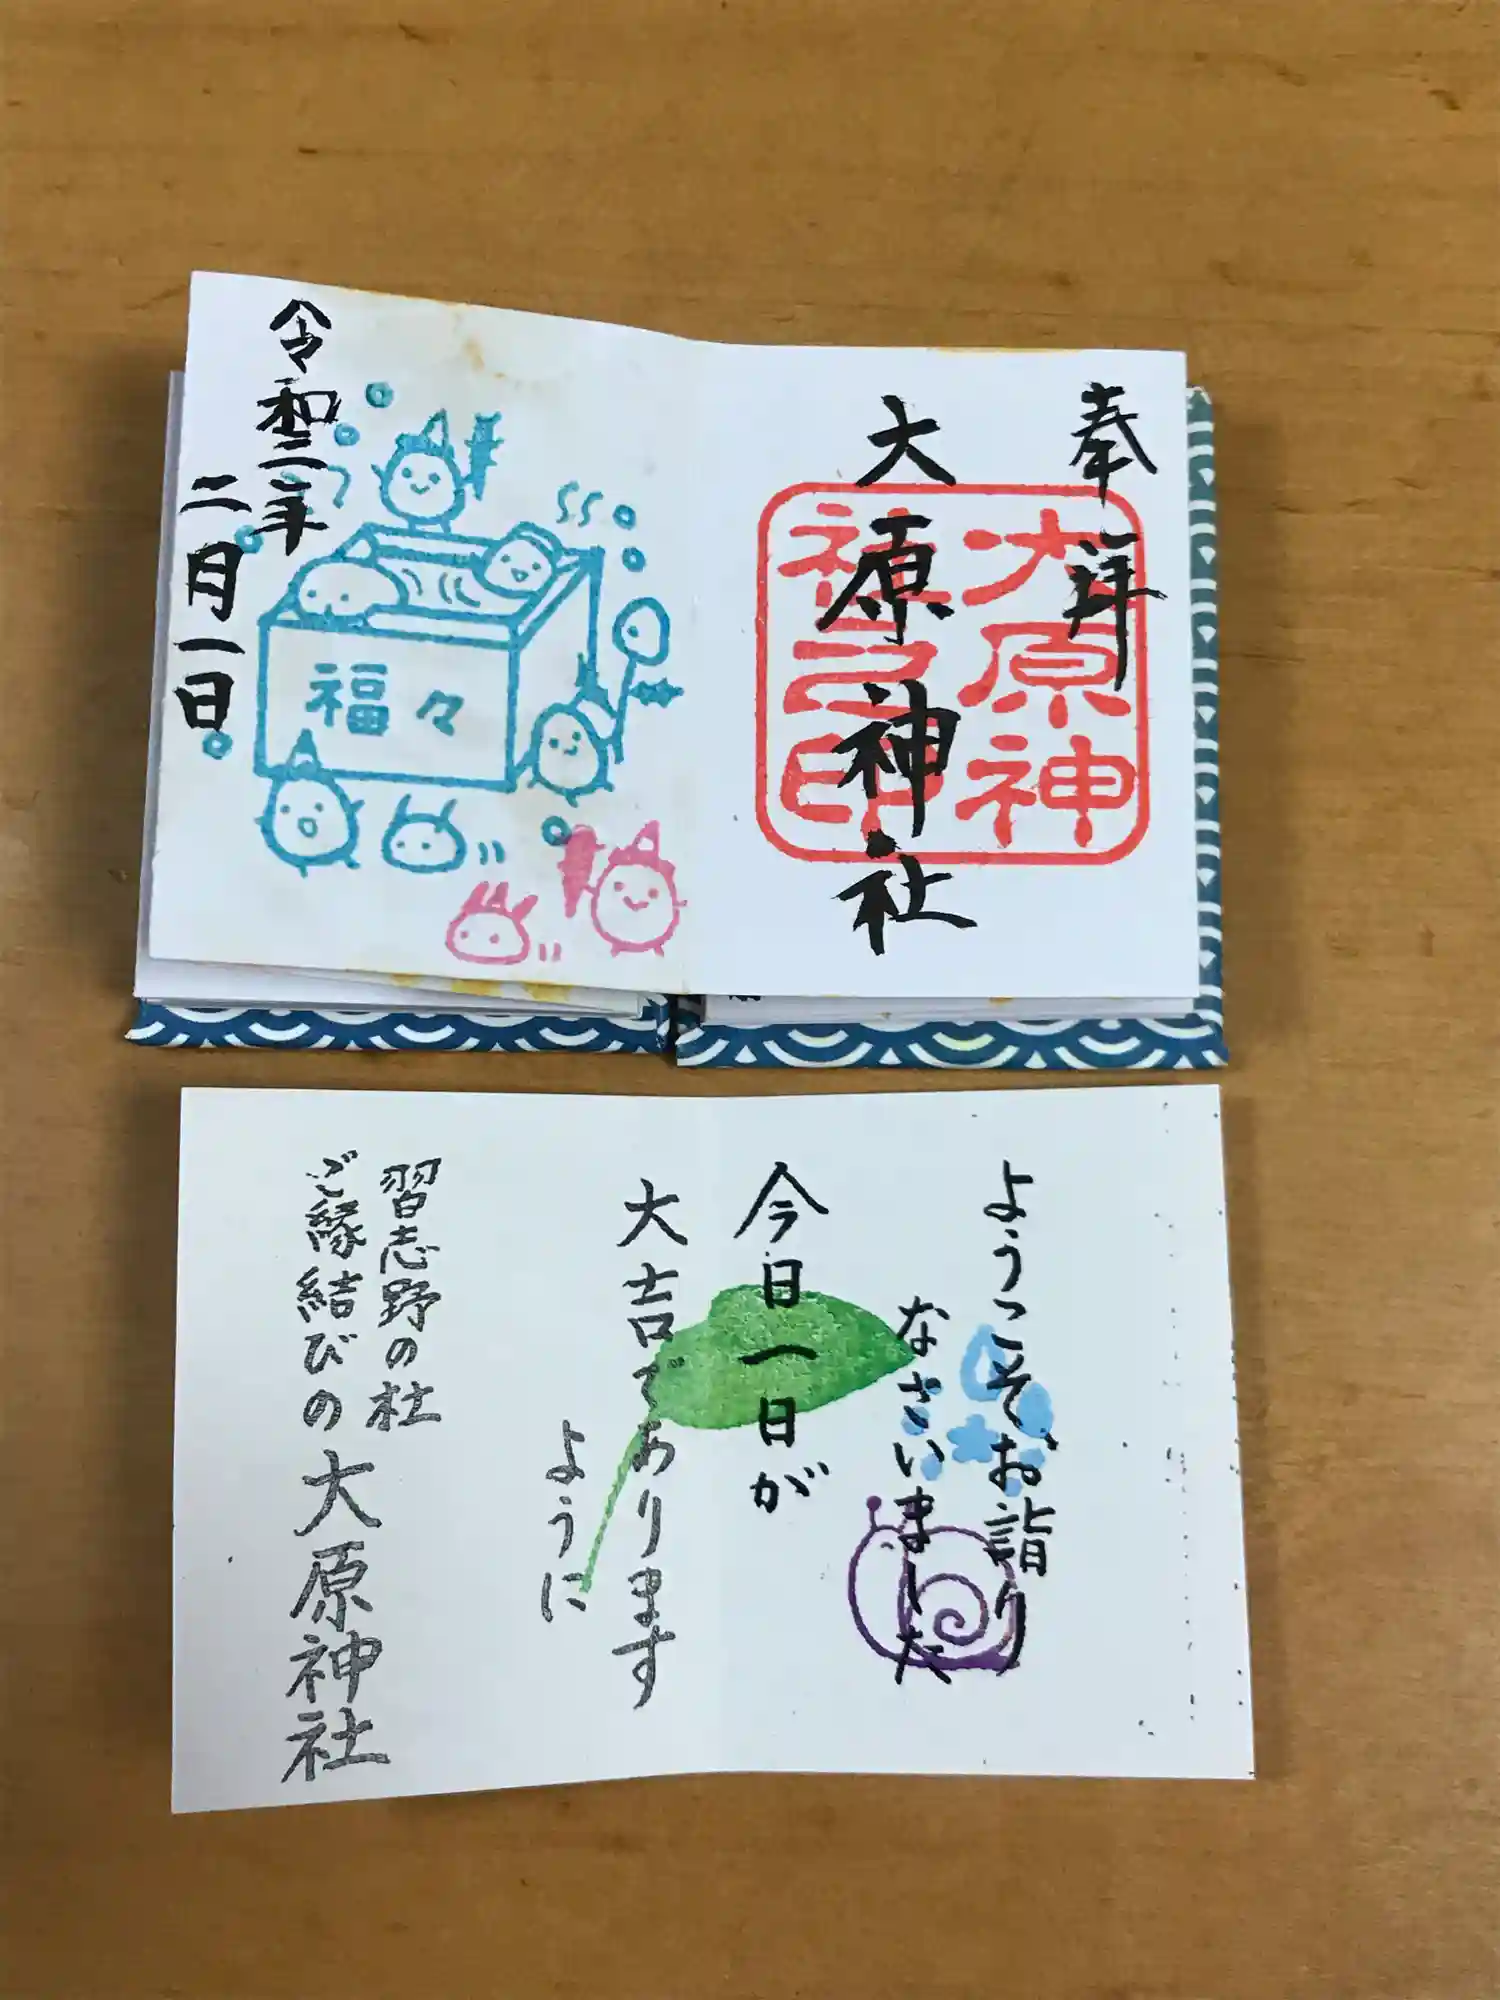 奉拝
大原神社
大原神
社之印
令和二年
二月一日
福々
ようこそ、お詣り
なさいました
今日一日が
大吉であります
ように
習志野の杜
ご縁結びの大原神社